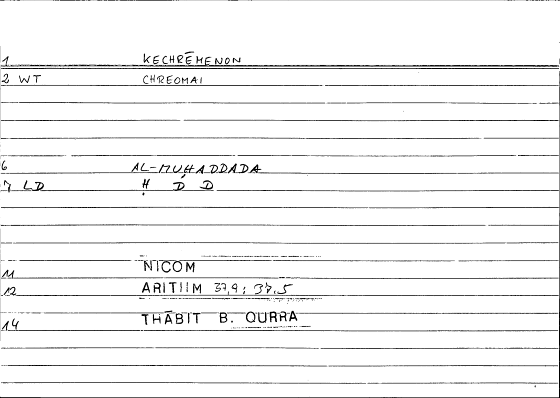 1 KECHRĒMENON
2 WT CHREOMAI
6 AL-MUḤADDADA
7 LD Ḥ D D
11 NICOM
12 ARITIIM 37,9; 37,5
14 THĀBIT B. QURRA